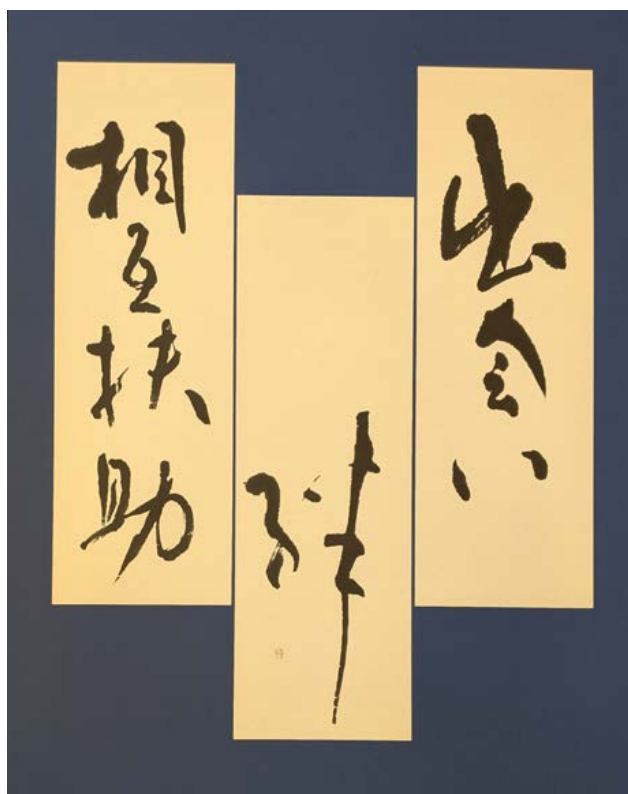 出会い
絆
相互扶助